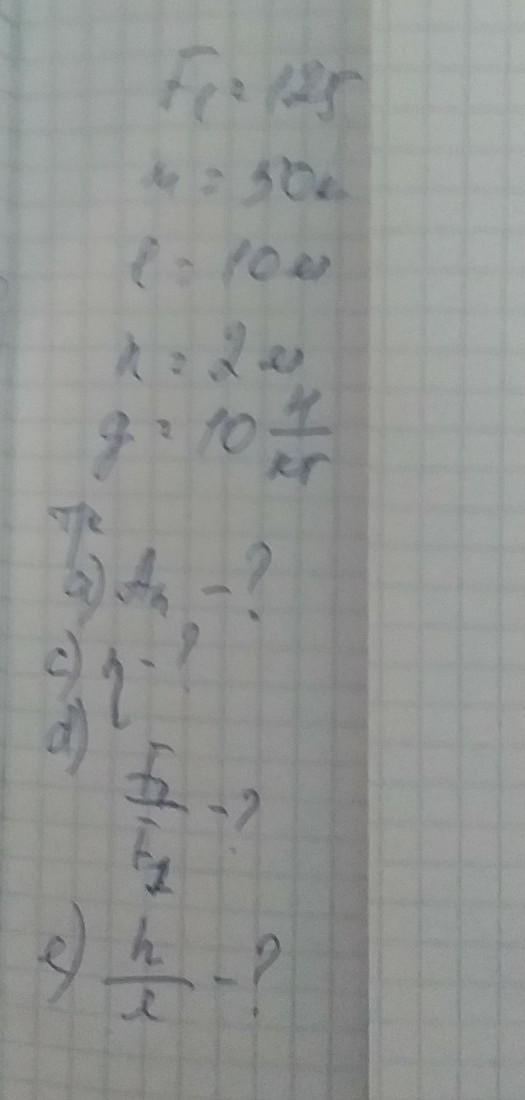 F₁ = 125
= 50
l = 10 м
h = 2 м
g = 10 Н/кг
a) Aп - ?
c) η - ?
d)
F₂/F₁ - ?
e) h/l - ?